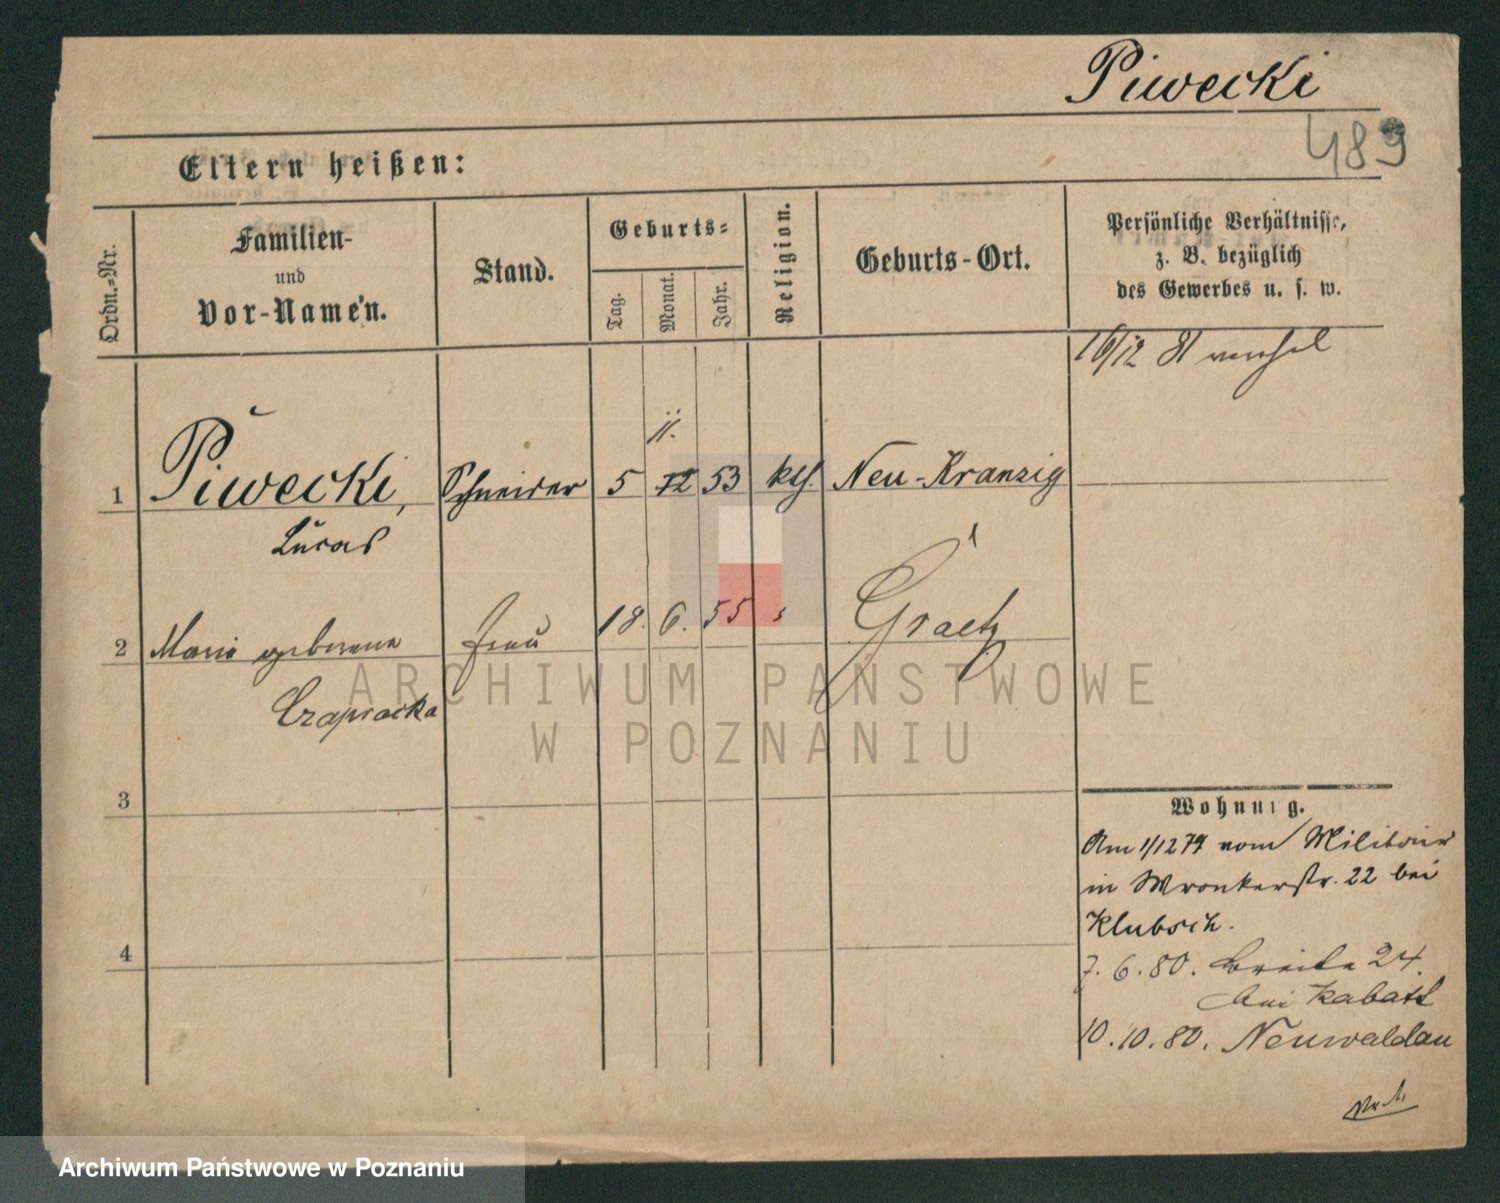 Piwecki
489
Eltern heißen:
Ordn.-Nr.
Familien-
und
Vor-Namen.
Stand.
Geburts-
Tag.
Monat.
Jahr.
Religion.
Geburts-Ort.
Persönliche Verhältnisse,
z. B. bezüglich
des Gewerbes u. s. w.
16/12 81
11.
1 Piwecki, Schneider 5 12 53 kth. Neu-Kranzig
Lucas
2 Marie geborene Frau 18. 6. 55 Graetz
Czapracka
3
4
Wohnung.
Am 1/12 79 vom Militair
in Wronkerstr. 22 bei
Klubsch.
7. 6. 80. Breite 24.
bei Kabatt
10. 10. 80. Neuwaldau
ARCHIWUM PAŃSTWOWE
W POZNANIU
Archiwum Państwowe w Poznaniu